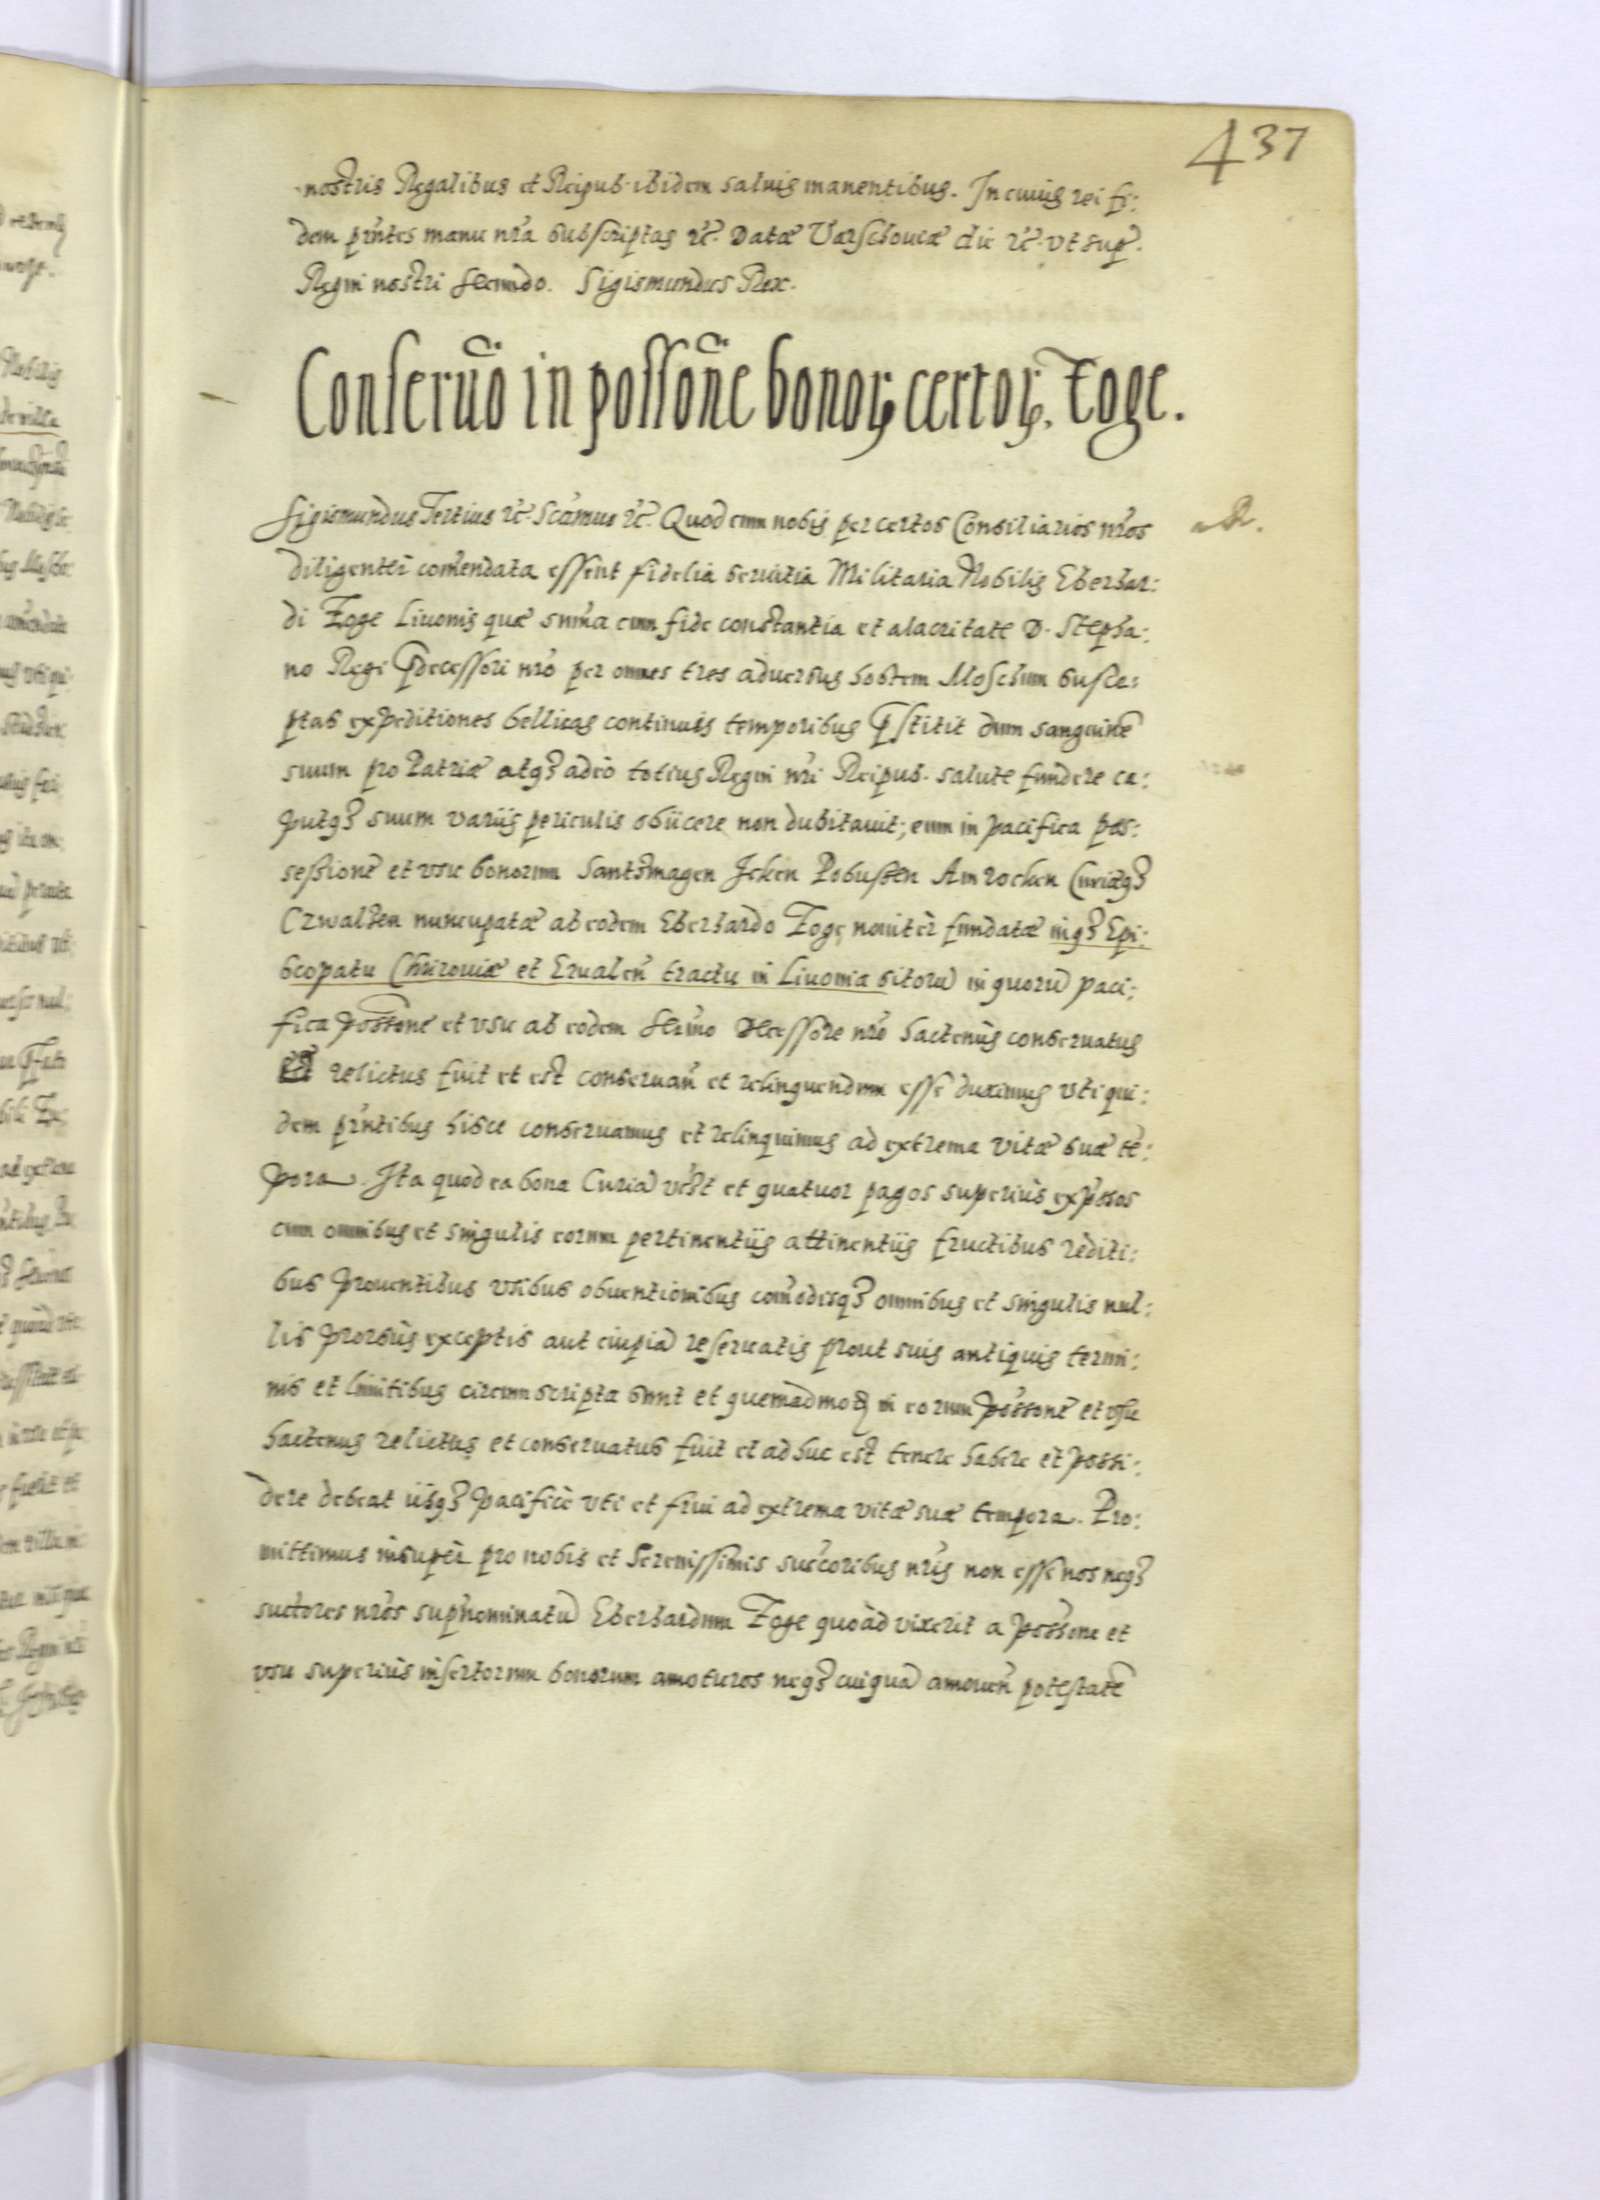 437
nostris Regalibus et Reipub. ibidem saluis manentibus. In cuius rei fi:
dem pñtes manu nr̃a subscriptas &c̃. Datæ Varschouiæ die &c̃. vt sup̃.
Regni nostri secundo. Sigismundus Rex.
Conseruõ in possõne bonoꝝ certoꝝ. Zoge.
Sigismundus Tertius &c̃. Scãmus &c̃. Quod cum nobis per certos Consiliarios nr̃os
diligenter com̃endata essent fidelia seruitia Militaria Nobilis Eberhar:
di Zoge Liuonis quæ sum̃a cum fide constantia et alacritate D. Stepha:
no Regi Prædecessori nr̃o per omnes tres aduersus hostem Moschum susce:
ptas expeditiones bellicas continuis temporibus p̃stitit dum sanguinẽ
suum pro Patriæ atqꝫ adeo totius Regni nr̃i Reipub. salute fundere ca:
putqꝫ suum variis periculis obiicere non dubitauit; eum in pacifica pos:
sessionẽ et vsu bonorum Santzmagen Jeken Pobushen Amrocken Curiæqꝫ
Czwalhen nuncupatæ ab eodem Eberhardo Zoge nouiter fundatæ inqꝫ Epi:
scopatu Churoniæ et Erualeñ tractu in Liuonia sitorũ in quorũ paci:
fica possõne et vsu ab eodem Ser̃mo decessore nr̃o hactenus conseruatus
et relictus fuit et est conseruañ et relinquendum esse duximus vti qui:
dem pñtibus hisce conseruamus et relinquimus ad extrema vitæ suæ tẽ:
pora. Ita quod ea bona Curiã vz̃t et quatuor pagos superius exp̃ssos
cum omnibus et singulis eorum pertinentiis attinentiis fructibus rediti:
bus prouentibus vsibus obuentionibus com̃odisqꝫ omnibus et singulis nul:
lis prorsus exceptis aut cuipiã reseruatis prout suis antiquis termi:
nis et limitibus circumscripta sunt et quemadmoꝫ in eorum possõne et vsu
hactenus relictus et conseruatus fuit et adhuc est tenere habere et possi:
dere debeat iisqꝫ pacifice vti et frui ad extrema vitæ suæ tempora. Pro:
mittimus insuper pro nobis et Serenissimis suc̃coribus nr̃is non esse nos neqꝫ
suc̃tores nr̃os sup̃nominatũ Eberhardum Zoge quoad vixerit a possõne et
vsu superius insertorum bonorum amoturos neqꝫ cuiquã amoueñ potestatẽ